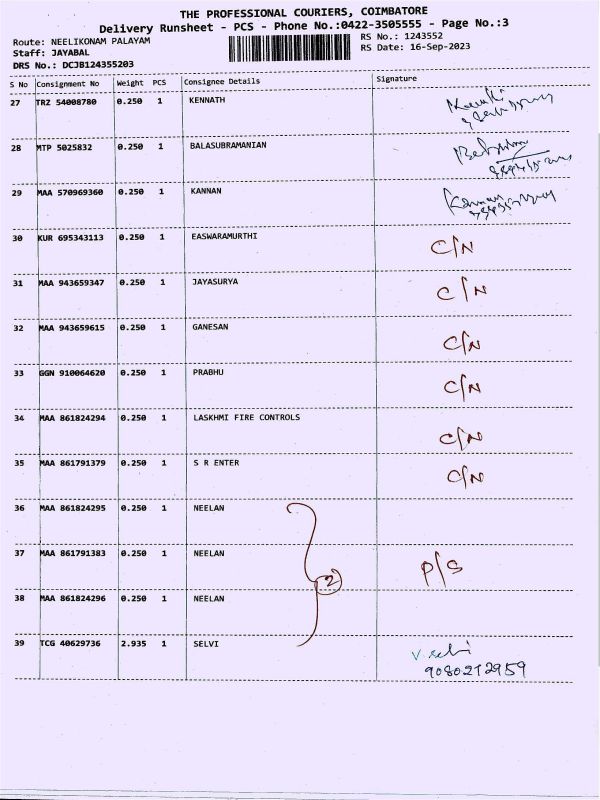 THE PROFESSIONAL COURIERS, COIMBATORE
Delivery Runsheet - PCS - Phone No.:0422-3505555 - Page No.:3
Route: NEELIKONAM PALAYAM RS No.: 1243552
Staff: JAYABAL RS Date: 16-Sep-2023
DRS No.: DCJB124355203
S No Consignment No Weight PCS Consignee Details Signature
27 TRZ 54008780 0.250 1 KENNATH
28 MTP 5025832 0.250 1 BALASUBRAMANIAN
29 MAA 570969360 0.250 1 KANNAN
30 KUR 695343113 0.250 1 EASWARAMURTHI C/N
31 MAA 943659347 0.250 1 JAYASURYA C/N
32 MAA 943659615 0.250 1 GANESAN C/N
33 GGN 910064620 0.250 1 PRABHU C/N
34 MAA 861824294 0.250 1 LASKHMI FIRE CONTROLS C/N
35 MAA 861791379 0.250 1 S R ENTER C/N
36 MAA 861824295 0.250 1 NEELAN
37 MAA 861791383 0.250 1 NEELAN 2 P/S
38 MAA 861824296 0.250 1 NEELAN
39 TCG 40629736 2.935 1 SELVI V. Selvi
9080212959